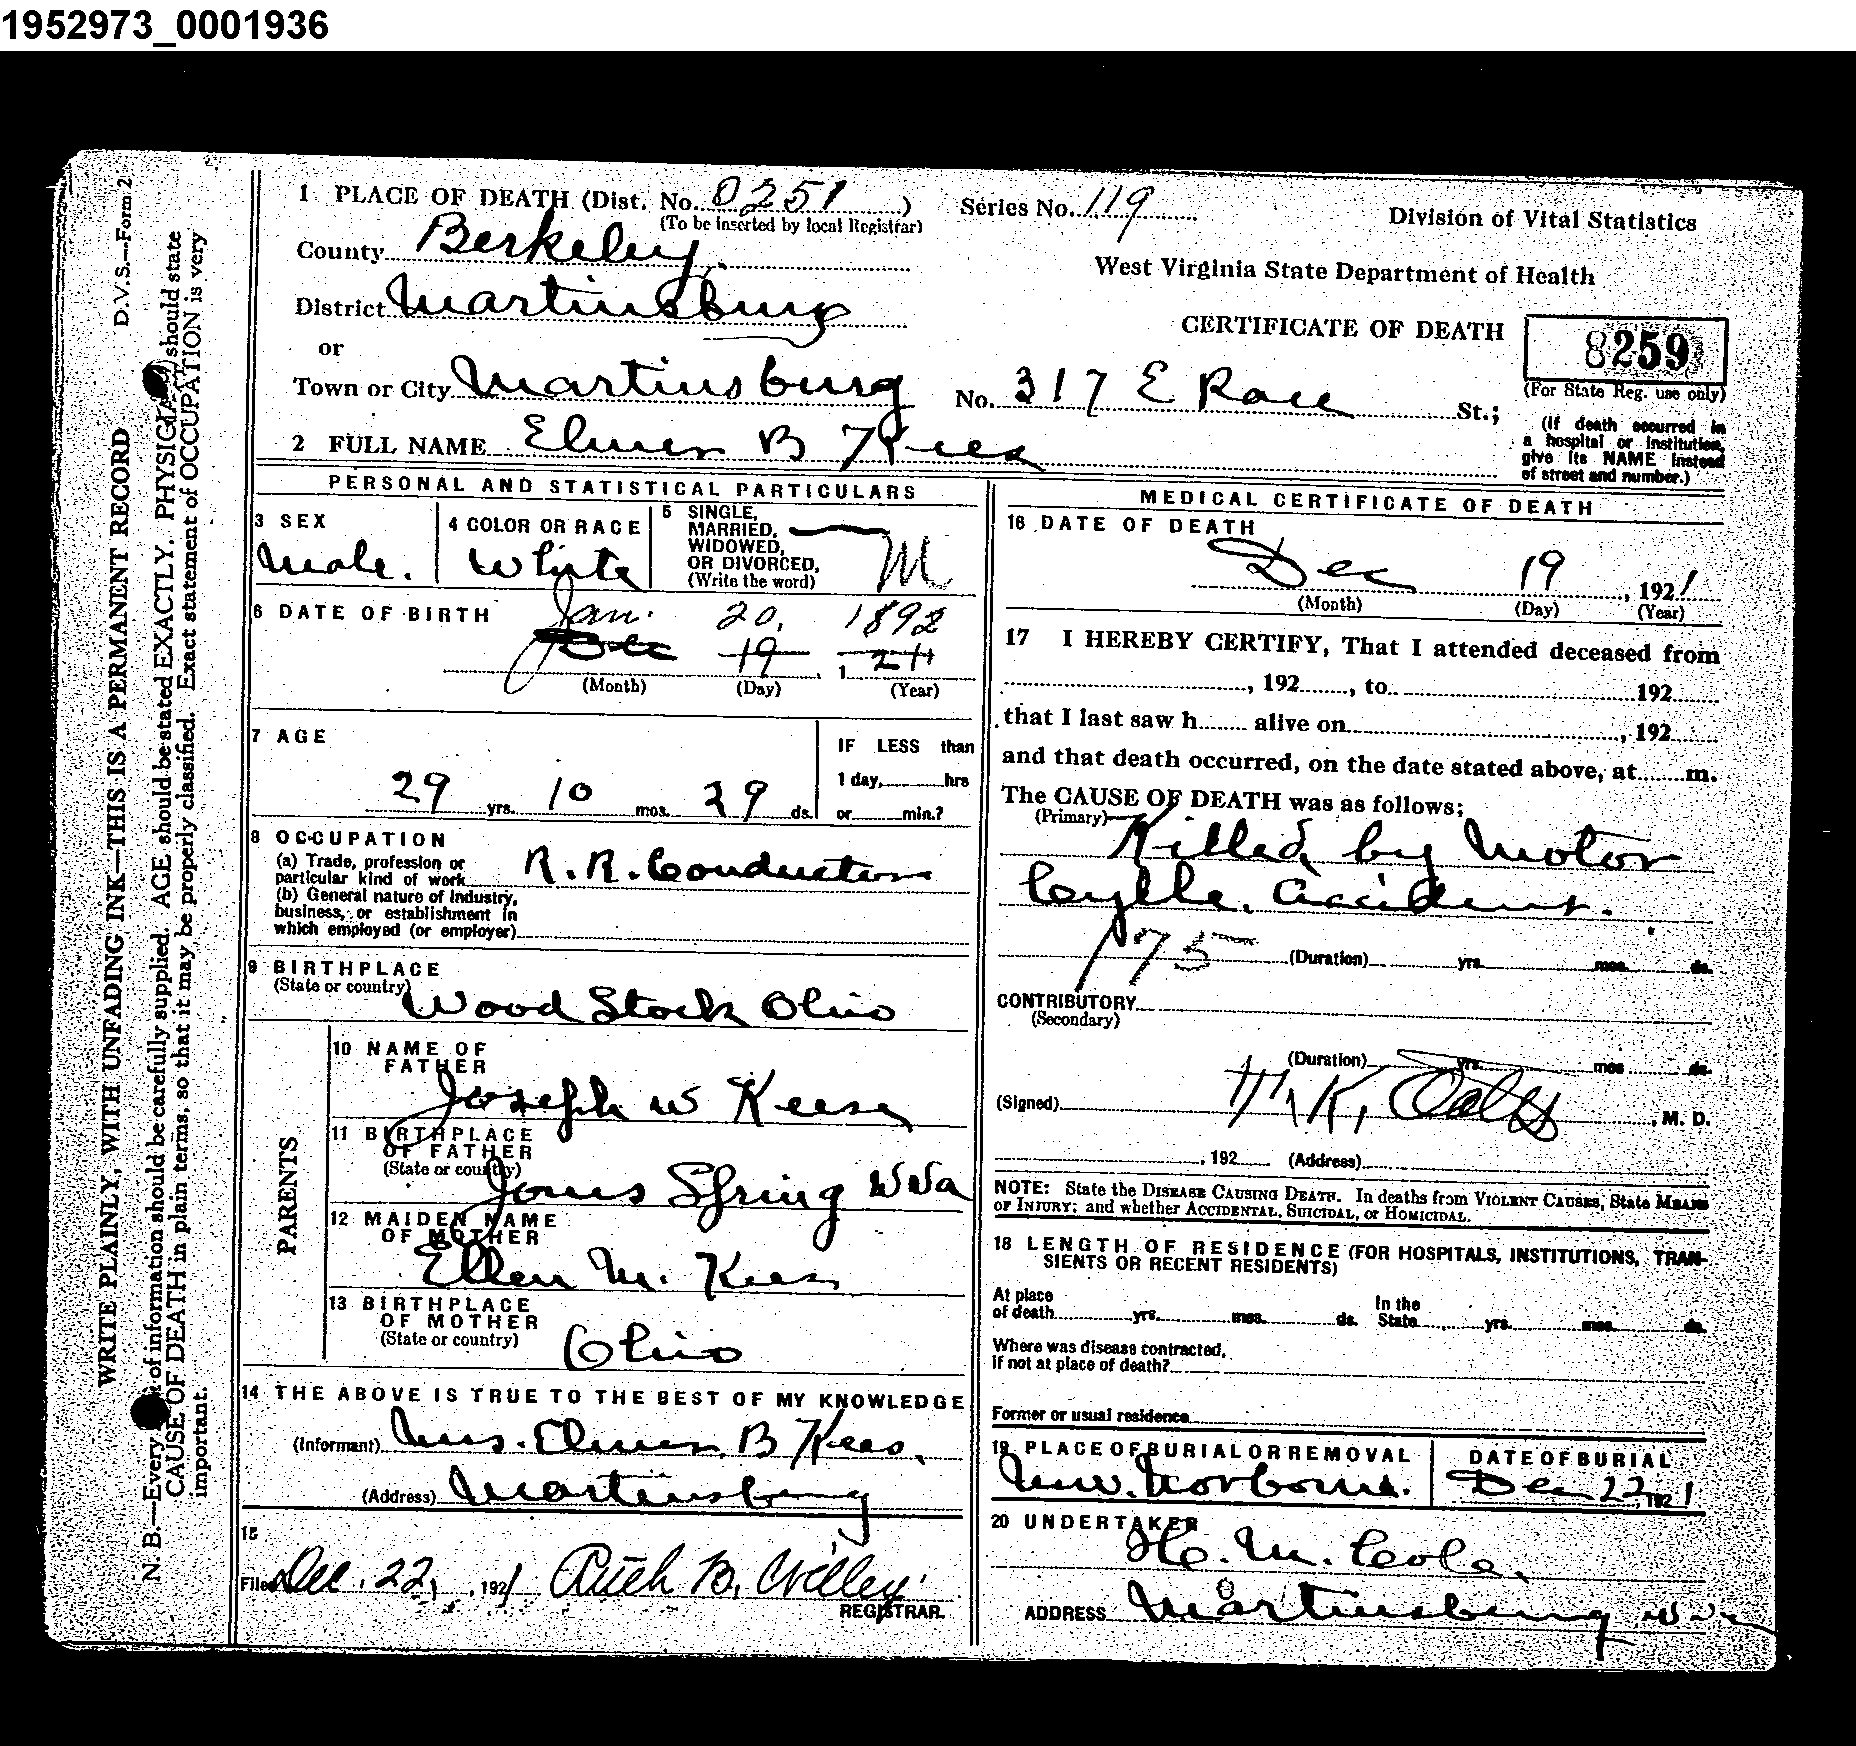 1952973_0001936
D.V.S.—Form 2
WRITE PLAINLY, WITH UNFADING INK—THIS IS A PERMANENT RECORD
N. B.—Every of information should be carefully supplied. AGE should be stated EXACTLY. PHYSICIA should state
CAUSE OF DEATH in plain terms, so that it may be properly classified. Exact statement of OCCUPATION is very
important.
1 PLACE OF DEATH (Dist. No. 0251)
(To be inserted by local Registrar)
Series No. 119
Division of Vital Statistics
County Berkeley
West Virginia State Department of Health
District Martinsburg
CERTIFICATE OF DEATH
8259
(For State Reg. use only)
or
Town or City Martinsburg No. 317 E Race St.;
(If death occurred in
a hospital or institution,
give its NAME instead
of street and number.)
2 FULL NAME Elmer B Kees
PERSONAL AND STATISTICAL PARTICULARS
3 SEX
Male.
4 COLOR OR RACE
White
5 SINGLE,
MARRIED,
WIDOWED,
OR DIVORCED,
(Write the word)
M
6 DATE OF BIRTH
Jan. 20, 1892
Dec 19 , 1 21
(Month) (Day) (Year)
7 AGE
29 yrs. 10 mos. 29 ds.
IF LESS than
1 day, hrs
or min.?
8 OCCUPATION
(a) Trade, profession or
particular kind of work R. R. Conductor
(b) General nature of industry,
business, or establishment in
which employed (or employer)
9 BIRTHPLACE
(State or country)
Wood Stock Ohio
PARENTS
10 NAME OF
FATHER
Joseph W Keese
11 BIRTHPLACE
OF FATHER
(State or country)
Jones Spring W Va
12 MAIDEN NAME
OF MOTHER
Ellen M. Kees
13 BIRTHPLACE
OF MOTHER
(State or country)
Ohio
14 THE ABOVE IS TRUE TO THE BEST OF MY KNOWLEDGE
(Informant) Mrs. Elmer B Kees.
(Address) Martinsburg
15
Filed Dec. 22, , 1921 Ruth B.
REGISTRAR.
MEDICAL CERTIFICATE OF DEATH
16 DATE OF DEATH
Dec 19 , 1921
(Month) (Day) (Year)
17 I HEREBY CERTIFY, That I attended deceased from
, 192 , to 192
that I last saw h alive on , 192
and that death occurred, on the date stated above, at m.
The CAUSE OF DEATH was as follows;
(Primary)
Killed by Motor
Cycle. accident.
175
(Duration) yrs. mos. ds.
CONTRIBUTORY
(Secondary)
(Duration) yrs. mos ds.
(Signed) K. , M. D.
, 192 (Address)
NOTE: State the DISEASE CAUSING DEATH. In deaths from VIOLENT CAUSES, State MEANS
OF INJURY; and whether ACCIDENTAL, SUICIDAL, or HOMICIDAL.
18 LENGTH OF RESIDENCE (FOR HOSPITALS, INSTITUTIONS, TRAN-
SIENTS OR RECENT RESIDENTS)
At place
of death yrs. mos. ds.
In the
State yrs. mos. ds.
Where was disease contracted,
if not at place of death?
Former or usual residence
19 PLACE OF BURIAL OR REMOVAL
Norborne.
DATE OF BURIAL
Dec 22, 1921
20 UNDERTAKER
H. M. Cole.
ADDRESS Martinsburg W Va